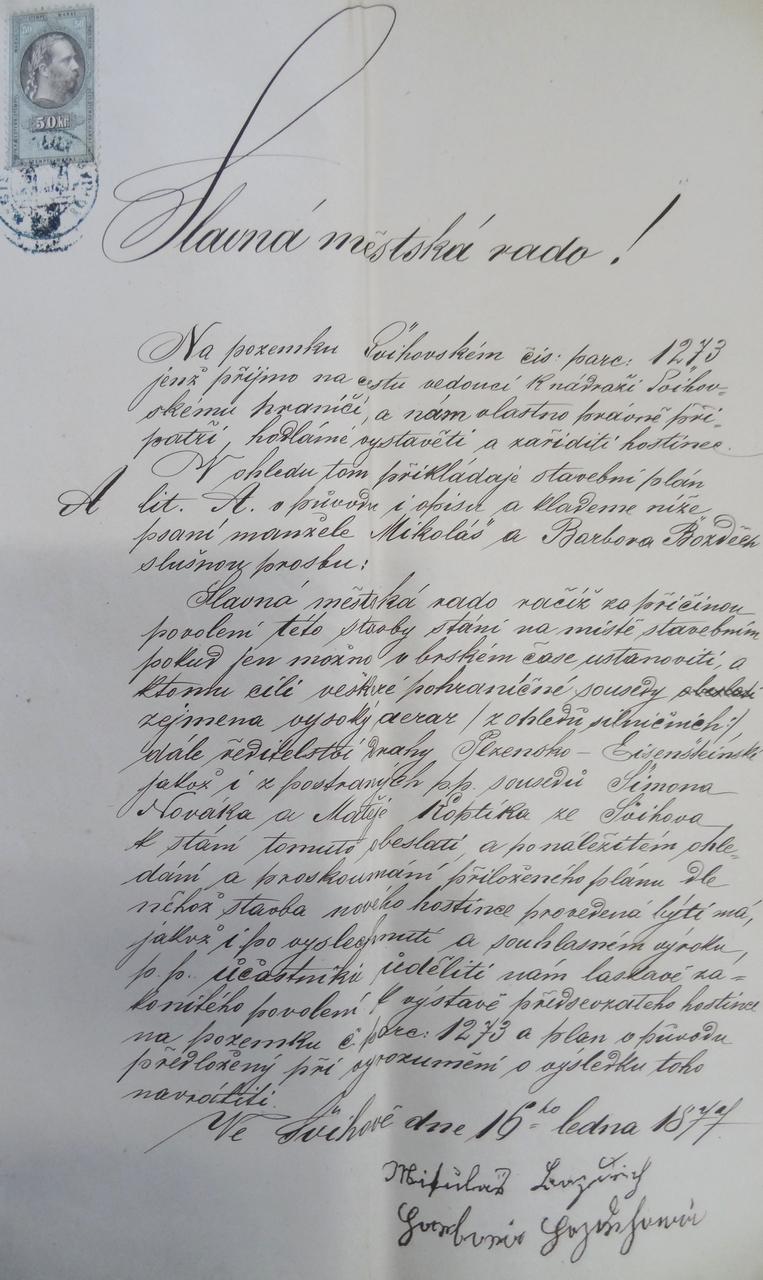 50 50
50 Kr
Slavná městská rado!
Na pozemku Švihovském čís: parc: 1273
jenž přijmo na cestu vedoucí k nádraží Švihov-
skému hraničí, a nám vlastno právně při-
patří, hodláme vystavěti a zaříditi hostinec.
V ohledu tom přikládaje stavební plán
A lit. A. v původu i opisu a klademe níže
psaní manžele Mikoláš a Barbora Božděch
slušnou prosbu:
Slavná městská rado račiž za příčinou
povolení této stavby stání na místě stavebním
pokud jen možno v brském čase ustanoviti, a
ktomu cíli veškeré pohraničné sousedy
zejmena vysoký aerar /: z ohledů silničních :/
dále ředitelství dráhy Plzensko – Eisenšteinské
jakož i z postraných p.p. sousedů Šimona
Nováka a Matěje Koptíka ze Švihova
k stání tomuto obeslati, a po náležitém ohle-
dání a proskoumání přiloženého plánu dle
něhož stavba nového hostince provedená býti má,
jakož i po vyslechnutí a souhlasném výroku,
p. p. účastníků uděliti nám laskavě zá-
konitého povolení k výstavě předsevzatého hostince
na pozemku č parc: 1273 a plán v původu
předložený při vyrozumění o výsledku toho
navrátiti.
We Švihově dne 16ho ledna 1877
Mikulaš